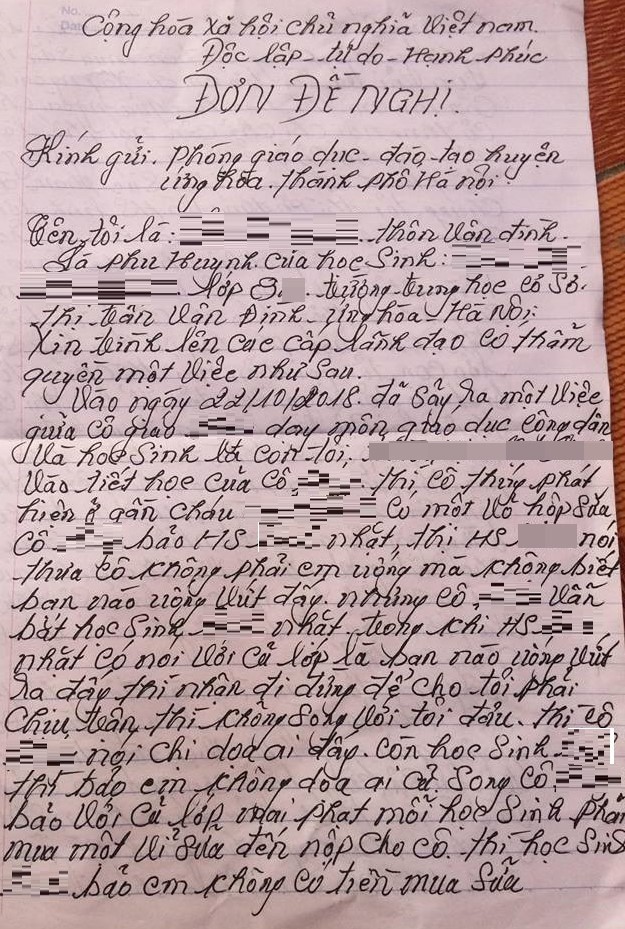 No.
Date
Cộng hóa xã hội chủ nghĩa Việt nam.
Độc lập - tự do - Hạnh phúc
ĐƠN ĐỀ NGHỊ.
Kính gửi. phòng giáo dục - đào tạo huyện
ứng hòa. thành phố Hà nội
Tên tôi là: thôn Vân đình.
Là phụ Huynh của học Sinh:
lớp 8 trường trung học cơ Sở.
thị trấn Vân Đình - ứng hòa - Hà Nội:
Xin trình lên các cấp lãnh đạo có thẩm
quyền một việc như Sau.
Vào ngày 22/10/2018. đã Sẩy ra một việc
giữa cô giáo dạy môn giáo dục công dân
Và học Sinh là con tôi,
Vào tiết học của cô thì cô thấy phát
hiện ở gần cháu Có một vỏ hộp Sữa
Cô bảo HS nhặt, thì HS nói
thưa cô không phải em uống mà không biết
bạn nào uống vứt đấy. nhưng cô, vẫn
bắt học Sinh nhặt. trong khi HS
nhặt có nói với cả lớp là bạn nào uống vứt
ra đấy thì nhận đi đừng để cho tôi phải
Chịu trận thì không song với tôi đâu. thì cô
nói chị dọa ai đấy. còn học Sinh
thì bảo em không dọa ai cả. Song cô,
bảo với cả lớp mai phạt mỗi học Sinh phải
mua một vỉ sữa đến nộp cho cô. thì học Sinh
bảo em không có tiền mua Sữa